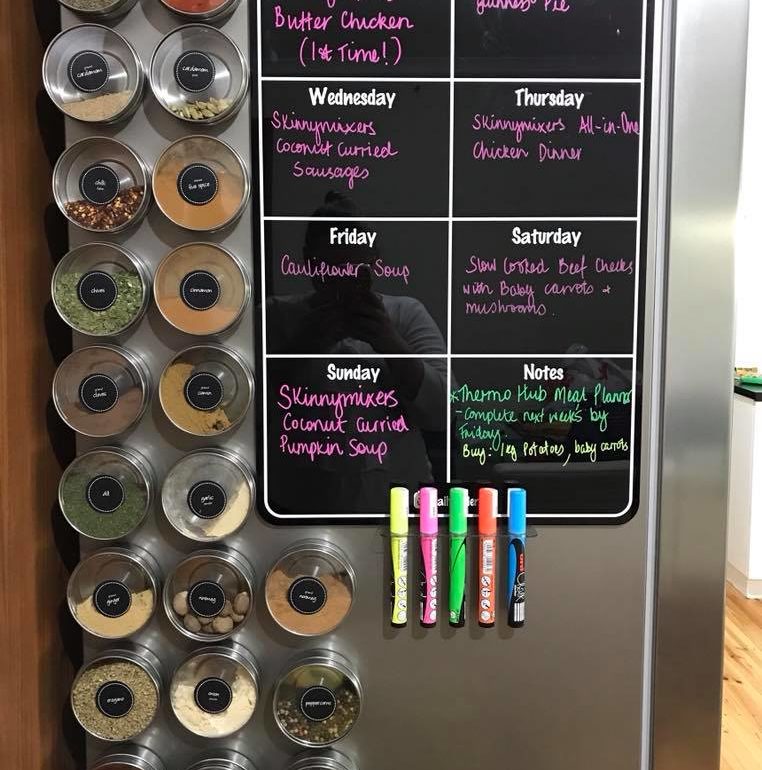 Butter Chicken
(1st Time!)
Pie
Wednesday
Skinnymixers
Coconut Curried
Sausages
Thursday
Skinnymixers All-in-One
Chicken Dinner
Friday
Cauliflower Soup
Saturday
Slow Cooked Beef Cheeks
with Baby carrots +
mushrooms.
Sunday
Skinnymixers
Coconut Curried
Pumpkin Soup
Notes
*Thermo Hub Meal Planner
-Complete next weeks by
Friday.
Buy: 1kg Potatoes, baby carrots
cardamom
cardamom
chilli
five spice
chives
cinnamon
cloves
cumin
dill
garlic
ginger
nutmeg
nutmeg
oregano
onion
peppercorns